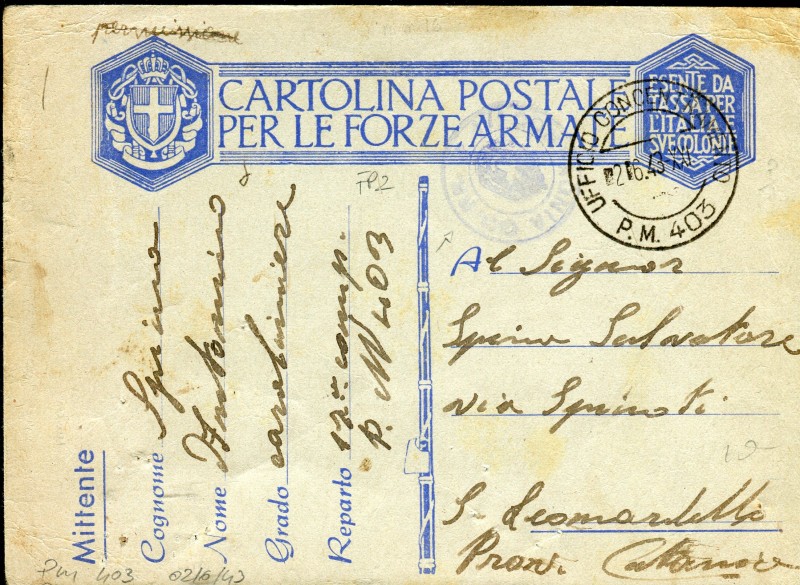 permissione
CARTOLINA POSTALE
PER LE FORZE ARMATE
ESENTE DA
TASSA PER
L'ITALIA E
SVE COLONIE
UFFICIO CONCENTRAMENTO
2.6.43
P.M. 403
FP2
Mittente
Cognome Spina
Nome Antonino
Grado carabiniere
Reparto 12ª comp.
P. M 403
Al Signor
Spina Salvatore
via Spinoti
S. Leonardello
Prov. Catania
PM 403 02/6/43